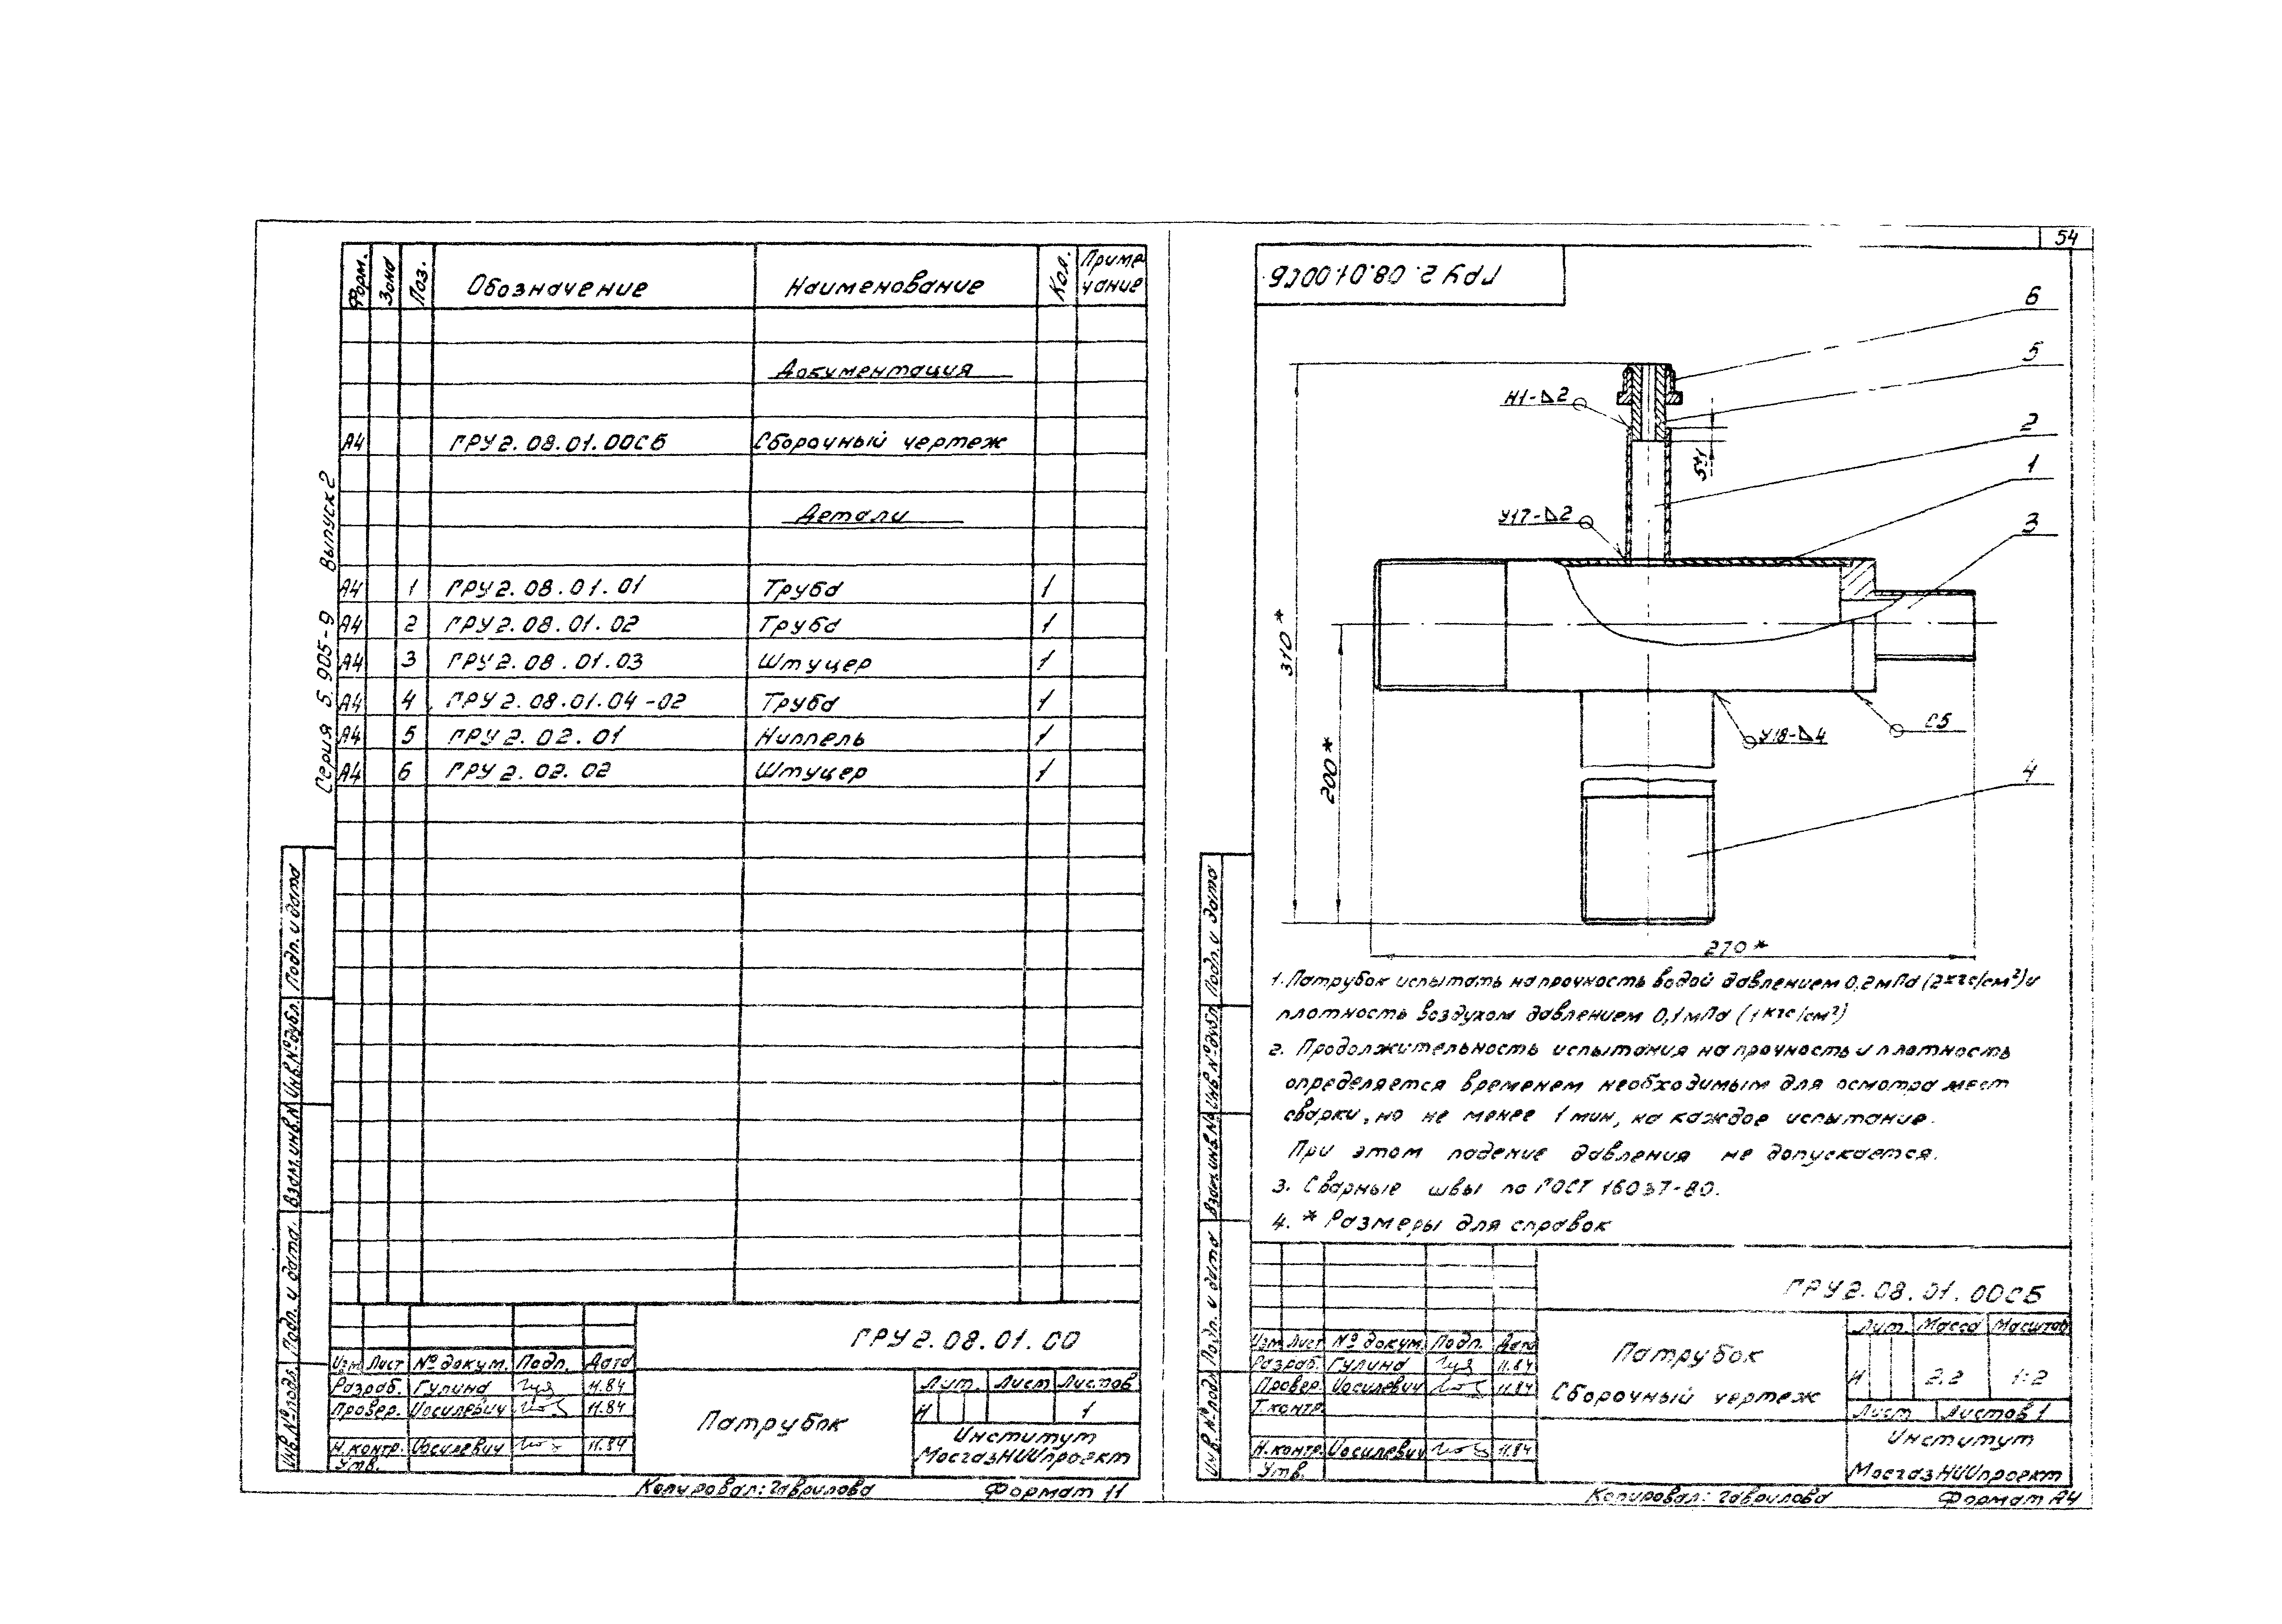 Форм. Зона Поз. Обозначение Наименование Кол. Приме чание
Документация
А4 ГРУ 2.08.01.00СБ Сборочный чертеж
Детали
А4 1 ГРУ 2.08.01.01 Труба 1
А4 2 ГРУ 2.08.01.02 Труба 1
А4 3 ГРУ 2.08.01.03 Штуцер 1
А4 4 ГРУ 2.08.01.04-02 Труба 1
А4 5 ГРУ 2.02.01 Ниппель 1
А4 6 ГРУ 2.02.02 Штуцер 1
Серия 5.905-9 Выпуск 2
Подп. и дата
Инв.№дубл.
Взам.инв.№
Подп. и дата.
Инв.№подл.
ГРУ 2.08.01.00
Изм Лист № докум. Подп. Дата
Разраб. Гулина 11.84
Провер. Иосилевич 11.84
Н.контр. Иосилевич 11.84
Утв.
Патрубок
Лит. Лист Листов
И 1
Институт
МосгазНИИпроект
Копировал: Гаврилова Формат 11
54
ГРУ 2.08.01.00СБ
6
5
2
1
3
4
Н1-△2
У17-△2
5±1
310*
200*
У18-△4
С5
270*
1. Патрубок испытать на прочность водой давлением 0,2мПа (2кгс/см²) и
плотность воздухом давлением 0,1мПа (1кгс/см²)
2. Продолжительность испытания на прочность и плотность
определяется временем необходимым для осмотра мест
сварки, но не менее 1 мин, на каждое испытание.
При этом падение давления не допускается.
3. Сварные швы по ГОСТ 16037-80.
4. * Размеры для справок
Подп. и дата
Инв.№дубл.
Взам.инв.№
Подп. и дата
Инв.№подл.
ГРУ 2.08.01.00СБ
Изм Лист № докум. Подп. Дата
Разраб. Гулина 11.84
Провер. Иосилевич 11.84
Т.контр.
Н.контр. Иосилевич 11.84
Утв.
Патрубок
Сборочный чертеж
Лит. Масса Масштаб
И 2.2 1:2
Лист Листов 1
Институт
МосгазНИИпроект
Копировал: Гаврилова Формат А4